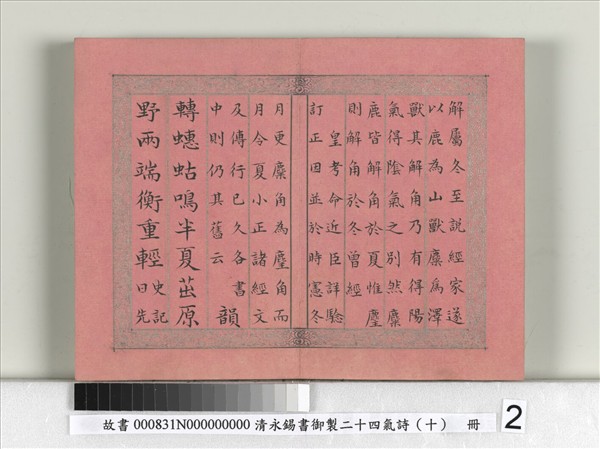 解屬冬至說經家遂
以鹿為山獸麋為澤
獸其解角乃有得陽
氣得陰氣之別然麋
鹿皆解角於夏惟麈
則解角於冬曾經
皇考命近臣詳驗
訂正因並於時憲冬
月更麋角為麈角而
月令夏小正諸經文
及傳行已久各書
中則仍其舊云
韻
轉蟪蛄鳴半夏茁原
野兩端衡重輕史記
日先
故書 000831N000000000 清永錫書御製二十四氣詩（十） 冊
2